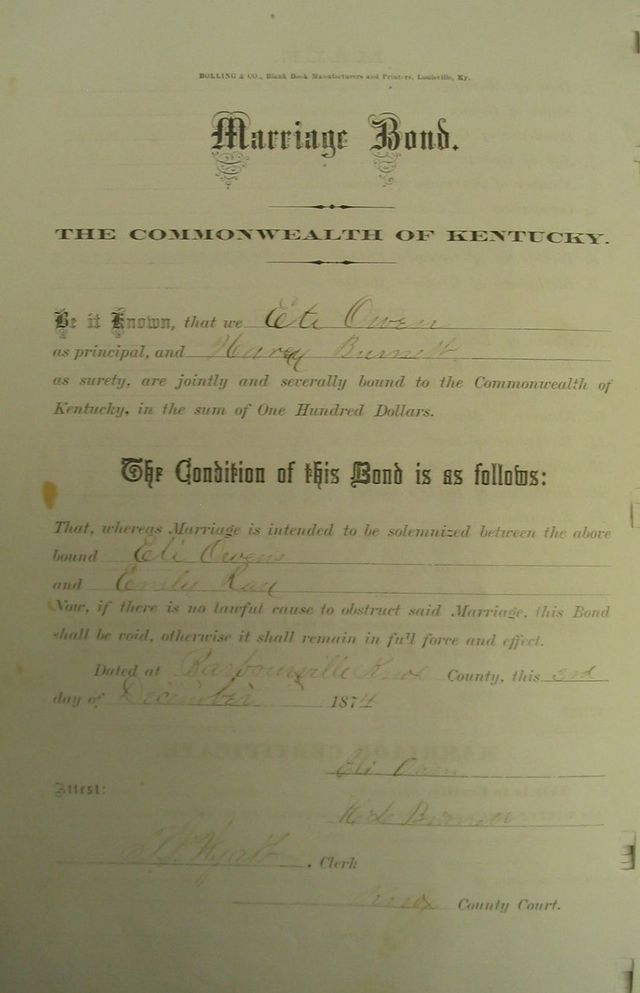 BOLLING & CO., Blank Book Manufacturers and Printers, Louisville, Ky.
Marriage Bond.
THE COMMONWEALTH OF KENTUCKY.
Be it Known, that we Eli Owen
as principal, and Harvy Burnett
as surety, are jointly and severally bound to the Commonwealth of
Kentucky, in the sum of One Hundred Dollars.
The Condition of this Bond is as follows:
That, whereas Marriage is intended to be solemnized between the above
bound Eli Owens
and Emily Ray
Now, if there is no lawful cause to obstruct said Marriage, this Bond
shall be void, otherwise it shall remain in full force and effect.
Dated at Barbourville Knox County, this 3rd
day of December 1874
Eli Owen
Attest:
Burnett
Wyatt, Clerk
Knox County Court.